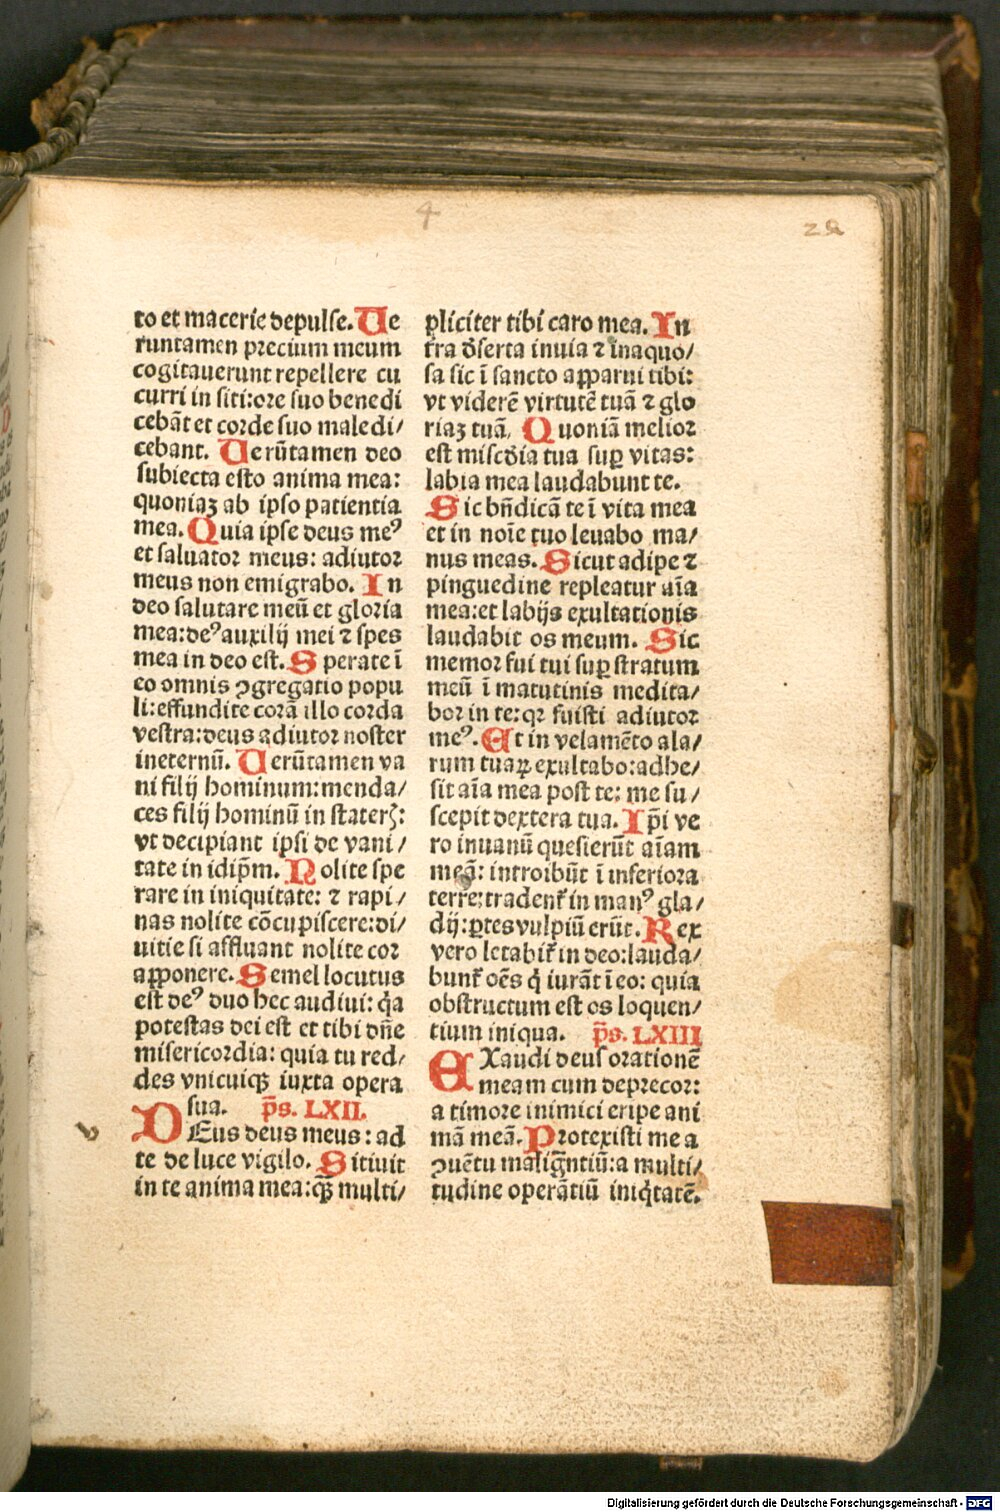 4
to et macerie depulse. Ue
runtamen precium meum
cogitauerunt repellere cu
curri in siti:ore suo benedi
cebāt et corde suo maledi/
cebant. Uerūtamen deo
subiecta esto anima mea:
quoniaꝫ ab ipso patientia
mea. Quia ipse deus meꝰ
et saluator meus: adiutor
meus non emigrabo. In
deo salutare meū et gloria
mea:deꝰ auxilij mei ⁊ spes
mea in deo est. Sperate ī
eo omnis ꝯgregatio popu
li:effundite corā illo corda
vestra:deus adiutor noster
ineternū. Uerūtamen va
ni filij hominum:menda/
ces filij hominū in staterꝭ:
vt decipiant ipsi de vani/
tate in idip̄m. Nolite spe
rare in iniquitate: ⁊ rapi/
nas nolite cōcupiscere:di/
uitie si affluant nolite cor
apponere. Semel locutus
est deꝰ duo hec audiui: q̇a
potestas dei est et tibi dn̄e
misericordia: quia tu red/
des vnicuiqꝫ iuxta opera
sua. p̄s. LXII.
DEus deus meus: ad
te de luce vigilo. Sitiuit
in te anima mea:qꝫ̄ multi/
pliciter tibi caro mea. In
t̄ra d̄serta inuia ⁊ inaquo/
sa sic ī sancto apparui tibi:
vt viderē virtutē tuā ⁊ glo
riaꝫ tuā. Quoniā melior
est misc̄dia tua sup̄ vitas:
labia mea laudabunt te.
Sic bn̄dicā te ī vita mea
et in noīe tuo leuabo ma/
nus meas. Sicut adipe ⁊
pinguedine repleatur aīa
mea:et labijs exultationis
laudabit os meum. Sic
memor fui tui sup̄ stratum
meū ī matutinis medita/
bor in te:qꝛ fuisti adiutor
meꝰ. Et in velamēto ala/
rum tuaꝝ exultabo:adhe/
sit aīa mea post te: me su/
scepit dextera tua. Ip̄i ve
ro inuanū quesierūt aīam
meā: introibūt ī inferiora
terre:tradent᷑ in manꝰ gla/
dij:ꝑtes vulpiū erūt. Rex
vero letabit᷑ in deo:lauda/
bunt᷑ oēs q̇ iurāt ī eo: quia
obstructum est os loquen/
tium iniqua. p̄s. LXIII
EXaudi deus orationē
meam cum deprecor:
a timore inimici eripe ani
mā meā. Protexisti me a
ꝯuētu malign̄tiū:a multi/
tudine operātiū iniq̇tatē.
Digitalisierung gefördert durch die Deutsche Forschungsgemeinschaft - DFG